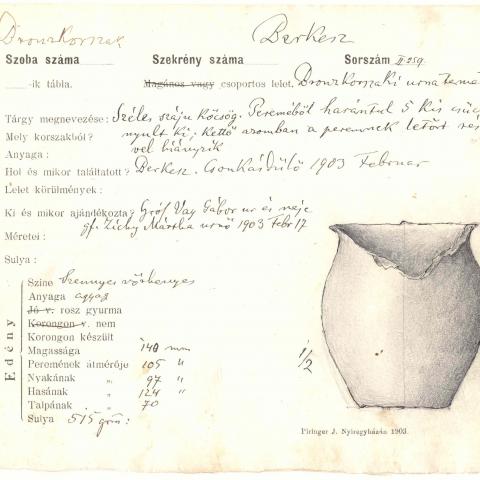 Bronzkorszak
Berkesz
Szoba száma
Szekrény száma
Sorszám II. 259.
-ik tábla.
Magános vagy csoportos lelet. Bronzkorszaki urnatemető
Tárgy megnevezése: Széles szájú köcsög. Pereméből harántul 5 kis csücs
Mely korszakból? nyult ki; kettő azomban a peremnek letört rés
Anyaga: vel hiányzik
Hol és mikor találtatott? Berkesz. Csonkásdülő 1903 Februar
Lelet körülmények:
Ki és mikor ajándékozta? Gróf Vay Gábor ur és neje
Méretei: gf. Zichy Mártha urnő 1903 Febr 17
Sulya:
Edény
Szine Szennyes vörhenyes
Anyaga agyag
Jó v. rosz gyurma
Korongon v. nem
Korongon készült
Magassága 140 mm
Peremének átmérője 105 "
Nyakának " 97 "
Hasának " 124 "
Talpának " 70
Sulya 515 grm:
1/2
Piringer J. Nyiregyházán 1903.